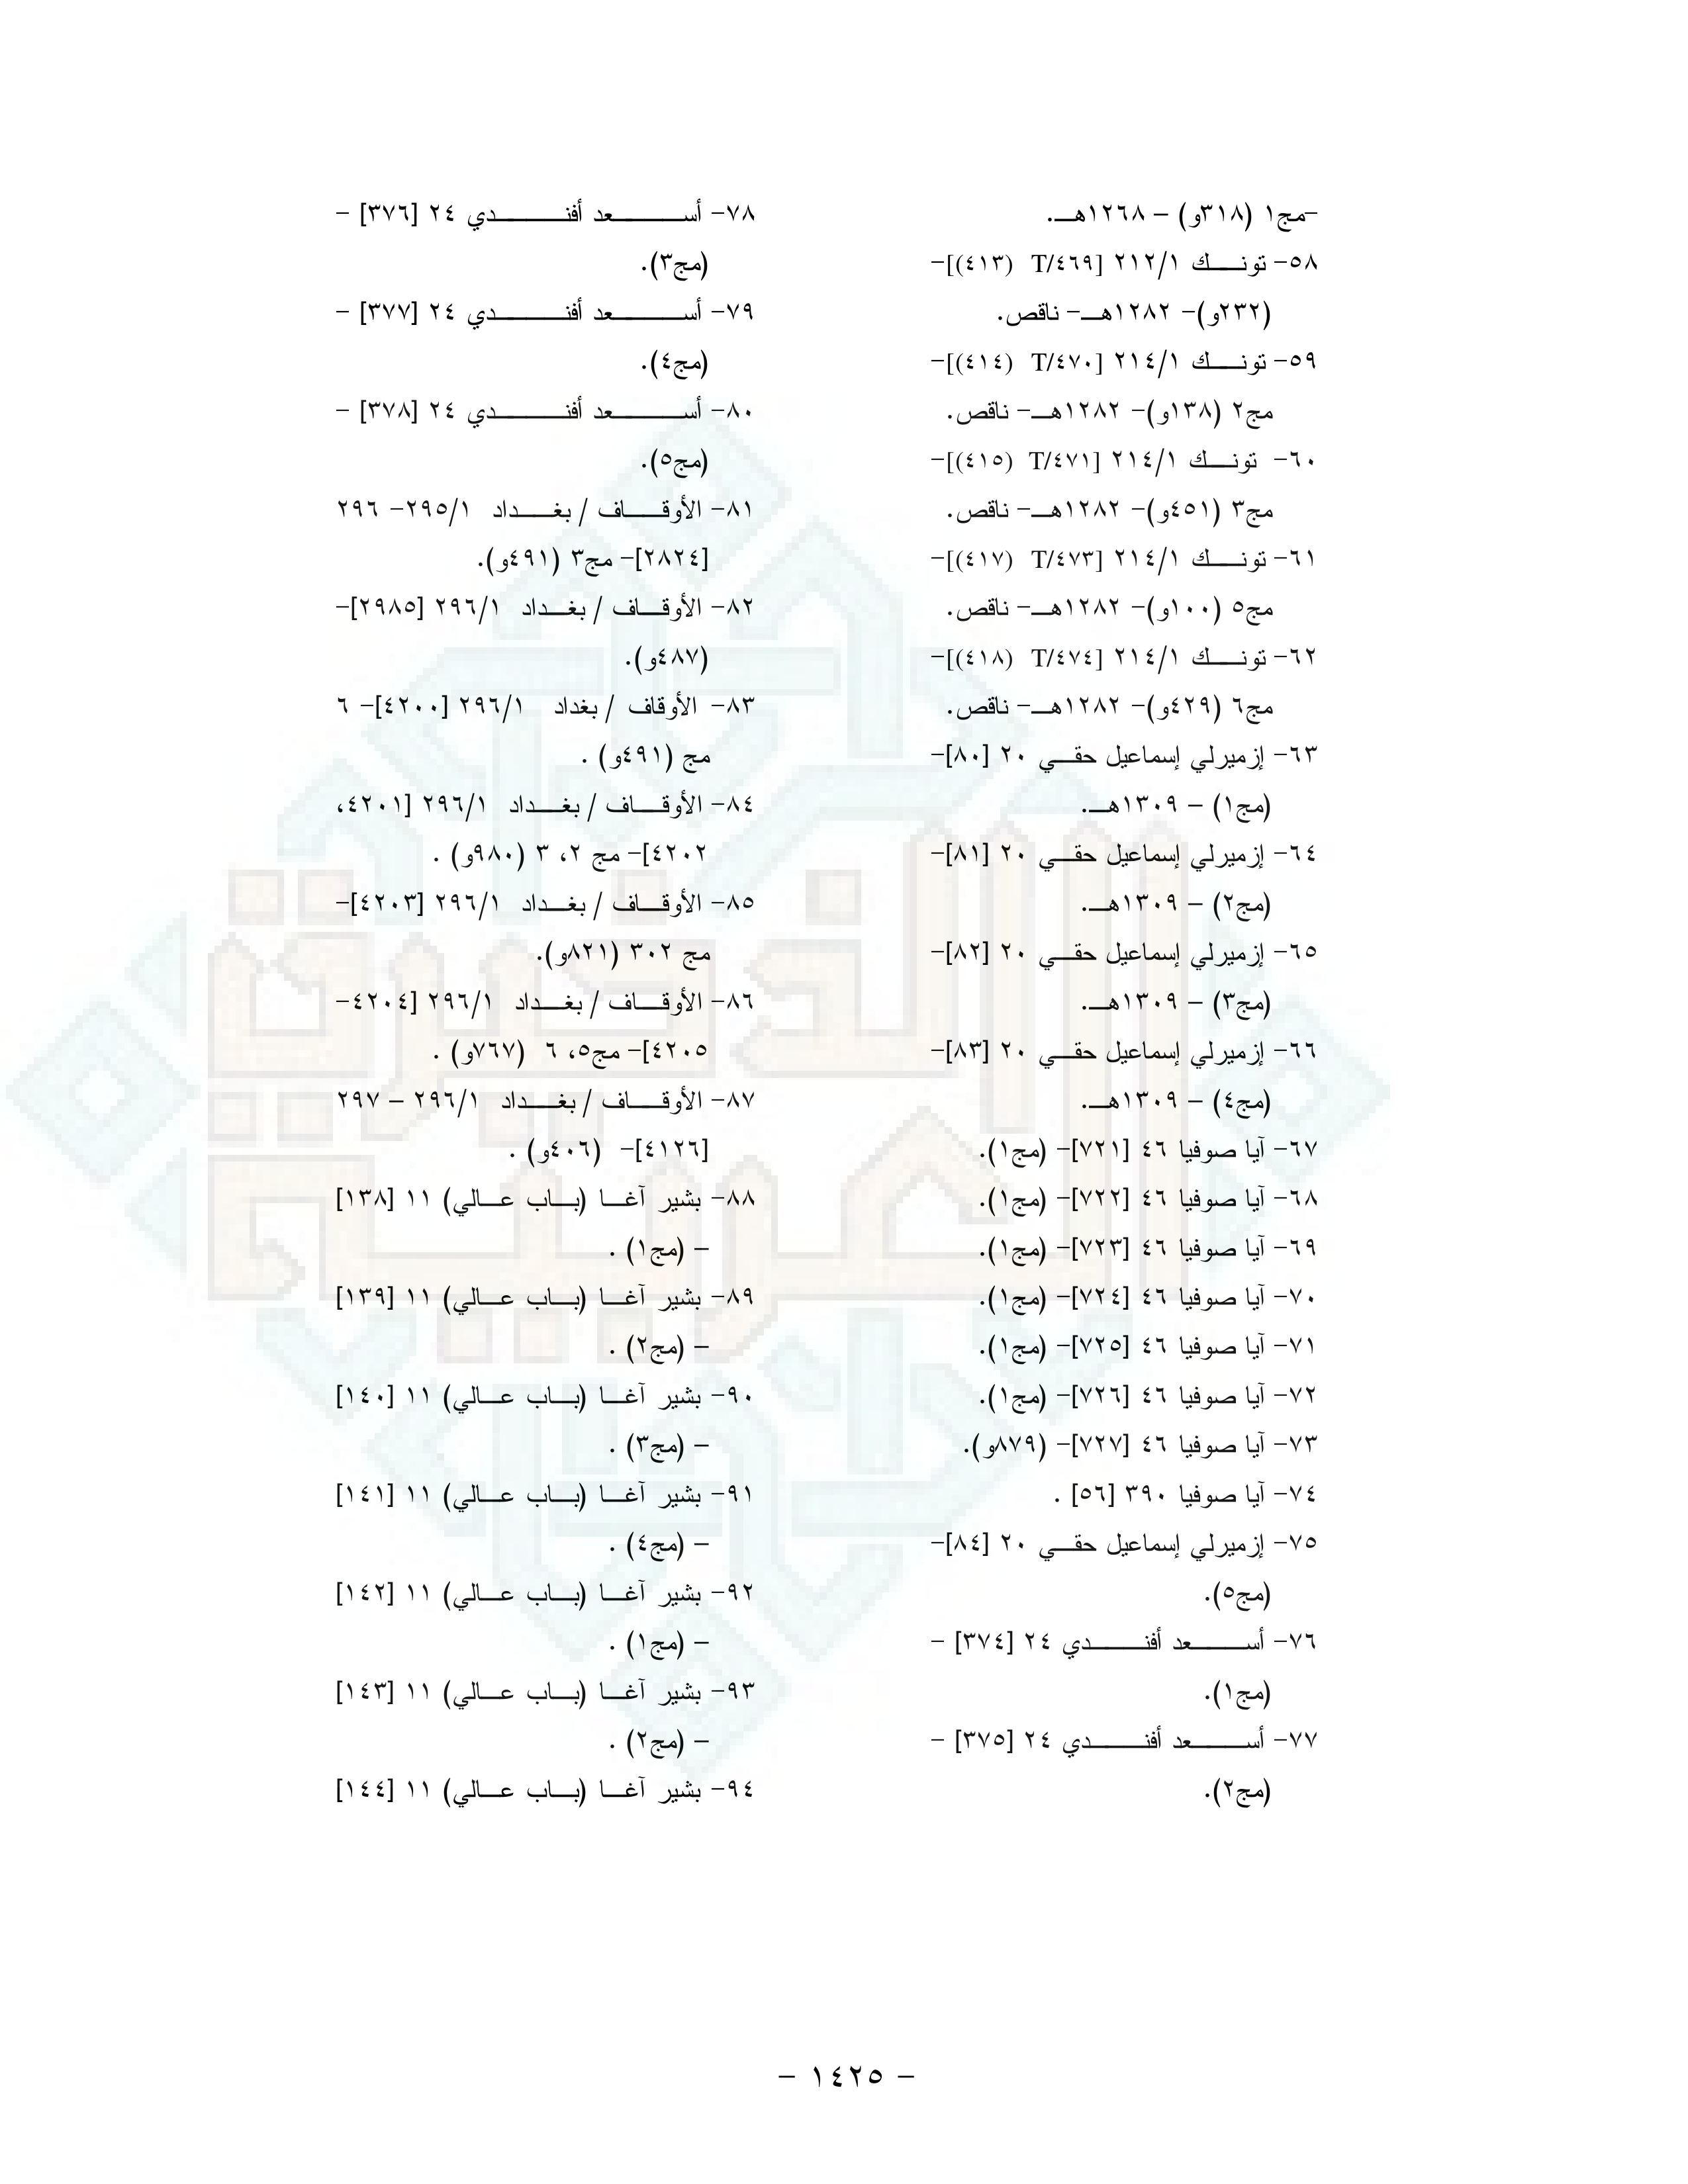 -مج١ (٣١٨و) – ١٢٦٨هـ.
٥٨- تونك ٢١٢/١ [T/٤٦٩ (٤١٣)]-
(٢٣٢و)- ١٢٨٢هـ- ناقص.
٥٩- تونك ٢١٤/١ [T/٤٧٠ (٤١٤)]-
مج٢ (١٣٨و)- ١٢٨٢هـ- ناقص.
٦٠- تونك ٢١٤/١ [T/٤٧١ (٤١٥)]-
مج٣ (٤٥١و)- ١٢٨٢هـ- ناقص.
٦١- تونك ٢١٤/١ [T/٤٧٣ (٤١٧)]-
مج٥ (١٠٠و)- ١٢٨٢هـ- ناقص.
٦٢- تونك ٢١٤/١ [T/٤٧٤ (٤١٨)]-
مج٦ (٤٢٩و)- ١٢٨٢هـ- ناقص.
٦٣- إزميرلي إسماعيل حقي ٢٠ [٨٠]-
(مج١) – ١٣٠٩هـ.
٦٤- إزميرلي إسماعيل حقي ٢٠ [٨١]-
(مج٢) – ١٣٠٩هـ.
٦٥- إزميرلي إسماعيل حقي ٢٠ [٨٢]-
(مج٣) – ١٣٠٩هـ.
٦٦- إزميرلي إسماعيل حقي ٢٠ [٨٣]-
(مج٤) – ١٣٠٩هـ.
٦٧- آيا صوفيا ٤٦ [٧٢١]- (مج١).
٦٨- آيا صوفيا ٤٦ [٧٢٢]- (مج١).
٦٩- آيا صوفيا ٤٦ [٧٢٣]- (مج١).
٧٠- آيا صوفيا ٤٦ [٧٢٤]- (مج١).
٧١- آيا صوفيا ٤٦ [٧٢٥]- (مج١).
٧٢- آيا صوفيا ٤٦ [٧٢٦]- (مج١).
٧٣- آيا صوفيا ٤٦ [٧٢٧]- (٨٧٩و).
٧٤- آيا صوفيا ٣٩٠ [٥٦] .
٧٥- إزميرلي إسماعيل حقي ٢٠ [٨٤]-
(مج٥).
٧٦- أسعد أفندي ٢٤ [٣٧٤] -
(مج١).
٧٧- أسعد أفندي ٢٤ [٣٧٥] -
(مج٢).
٧٨- أسعد أفندي ٢٤ [٣٧٦] -
(مج٣).
٧٩- أسعد أفندي ٢٤ [٣٧٧] -
(مج٤).
٨٠- أسعد أفندي ٢٤ [٣٧٨] -
(مج٥).
٨١- الأوقاف / بغداد ٢٩٥/١- ٢٩٦
[٢٨٢٤]- مج٣ (٤٩١و).
٨٢- الأوقاف / بغداد ٢٩٦/١ [٢٩٨٥]-
(٤٨٧و).
٨٣- الأوقاف / بغداد ٢٩٦/١ [٤٢٠٠]- ٦
مج (٤٩١و) .
٨٤- الأوقاف / بغداد ٢٩٦/١ [٤٢٠١،
٤٢٠٢]- مج ٢، ٣ (٩٨٠و) .
٨٥- الأوقاف / بغداد ٢٩٦/١ [٤٢٠٣]-
مج ٣٠٢ (٨٢١و).
٨٦- الأوقاف / بغداد ٢٩٦/١ [٤٢٠٤-
٤٢٠٥]- مج٥، ٦ (٧٦٧و) .
٨٧- الأوقاف / بغداد ٢٩٦/١ – ٢٩٧
[٤١٢٦]- (٤٠٦و) .
٨٨- بشير آغا (باب عالي) ١١ [١٣٨]
– (مج١) .
٨٩- بشير آغا (باب عالي) ١١ [١٣٩]
– (مج٢) .
٩٠- بشير آغا (باب عالي) ١١ [١٤٠]
– (مج٣) .
٩١- بشير آغا (باب عالي) ١١ [١٤١]
– (مج٤) .
٩٢- بشير آغا (باب عالي) ١١ [١٤٢]
– (مج١) .
٩٣- بشير آغا (باب عالي) ١١ [١٤٣]
– (مج٢) .
٩٤- بشير آغا (باب عالي) ١١ [١٤٤]
الذخيرة
العربية
- ١٤٢٥ -